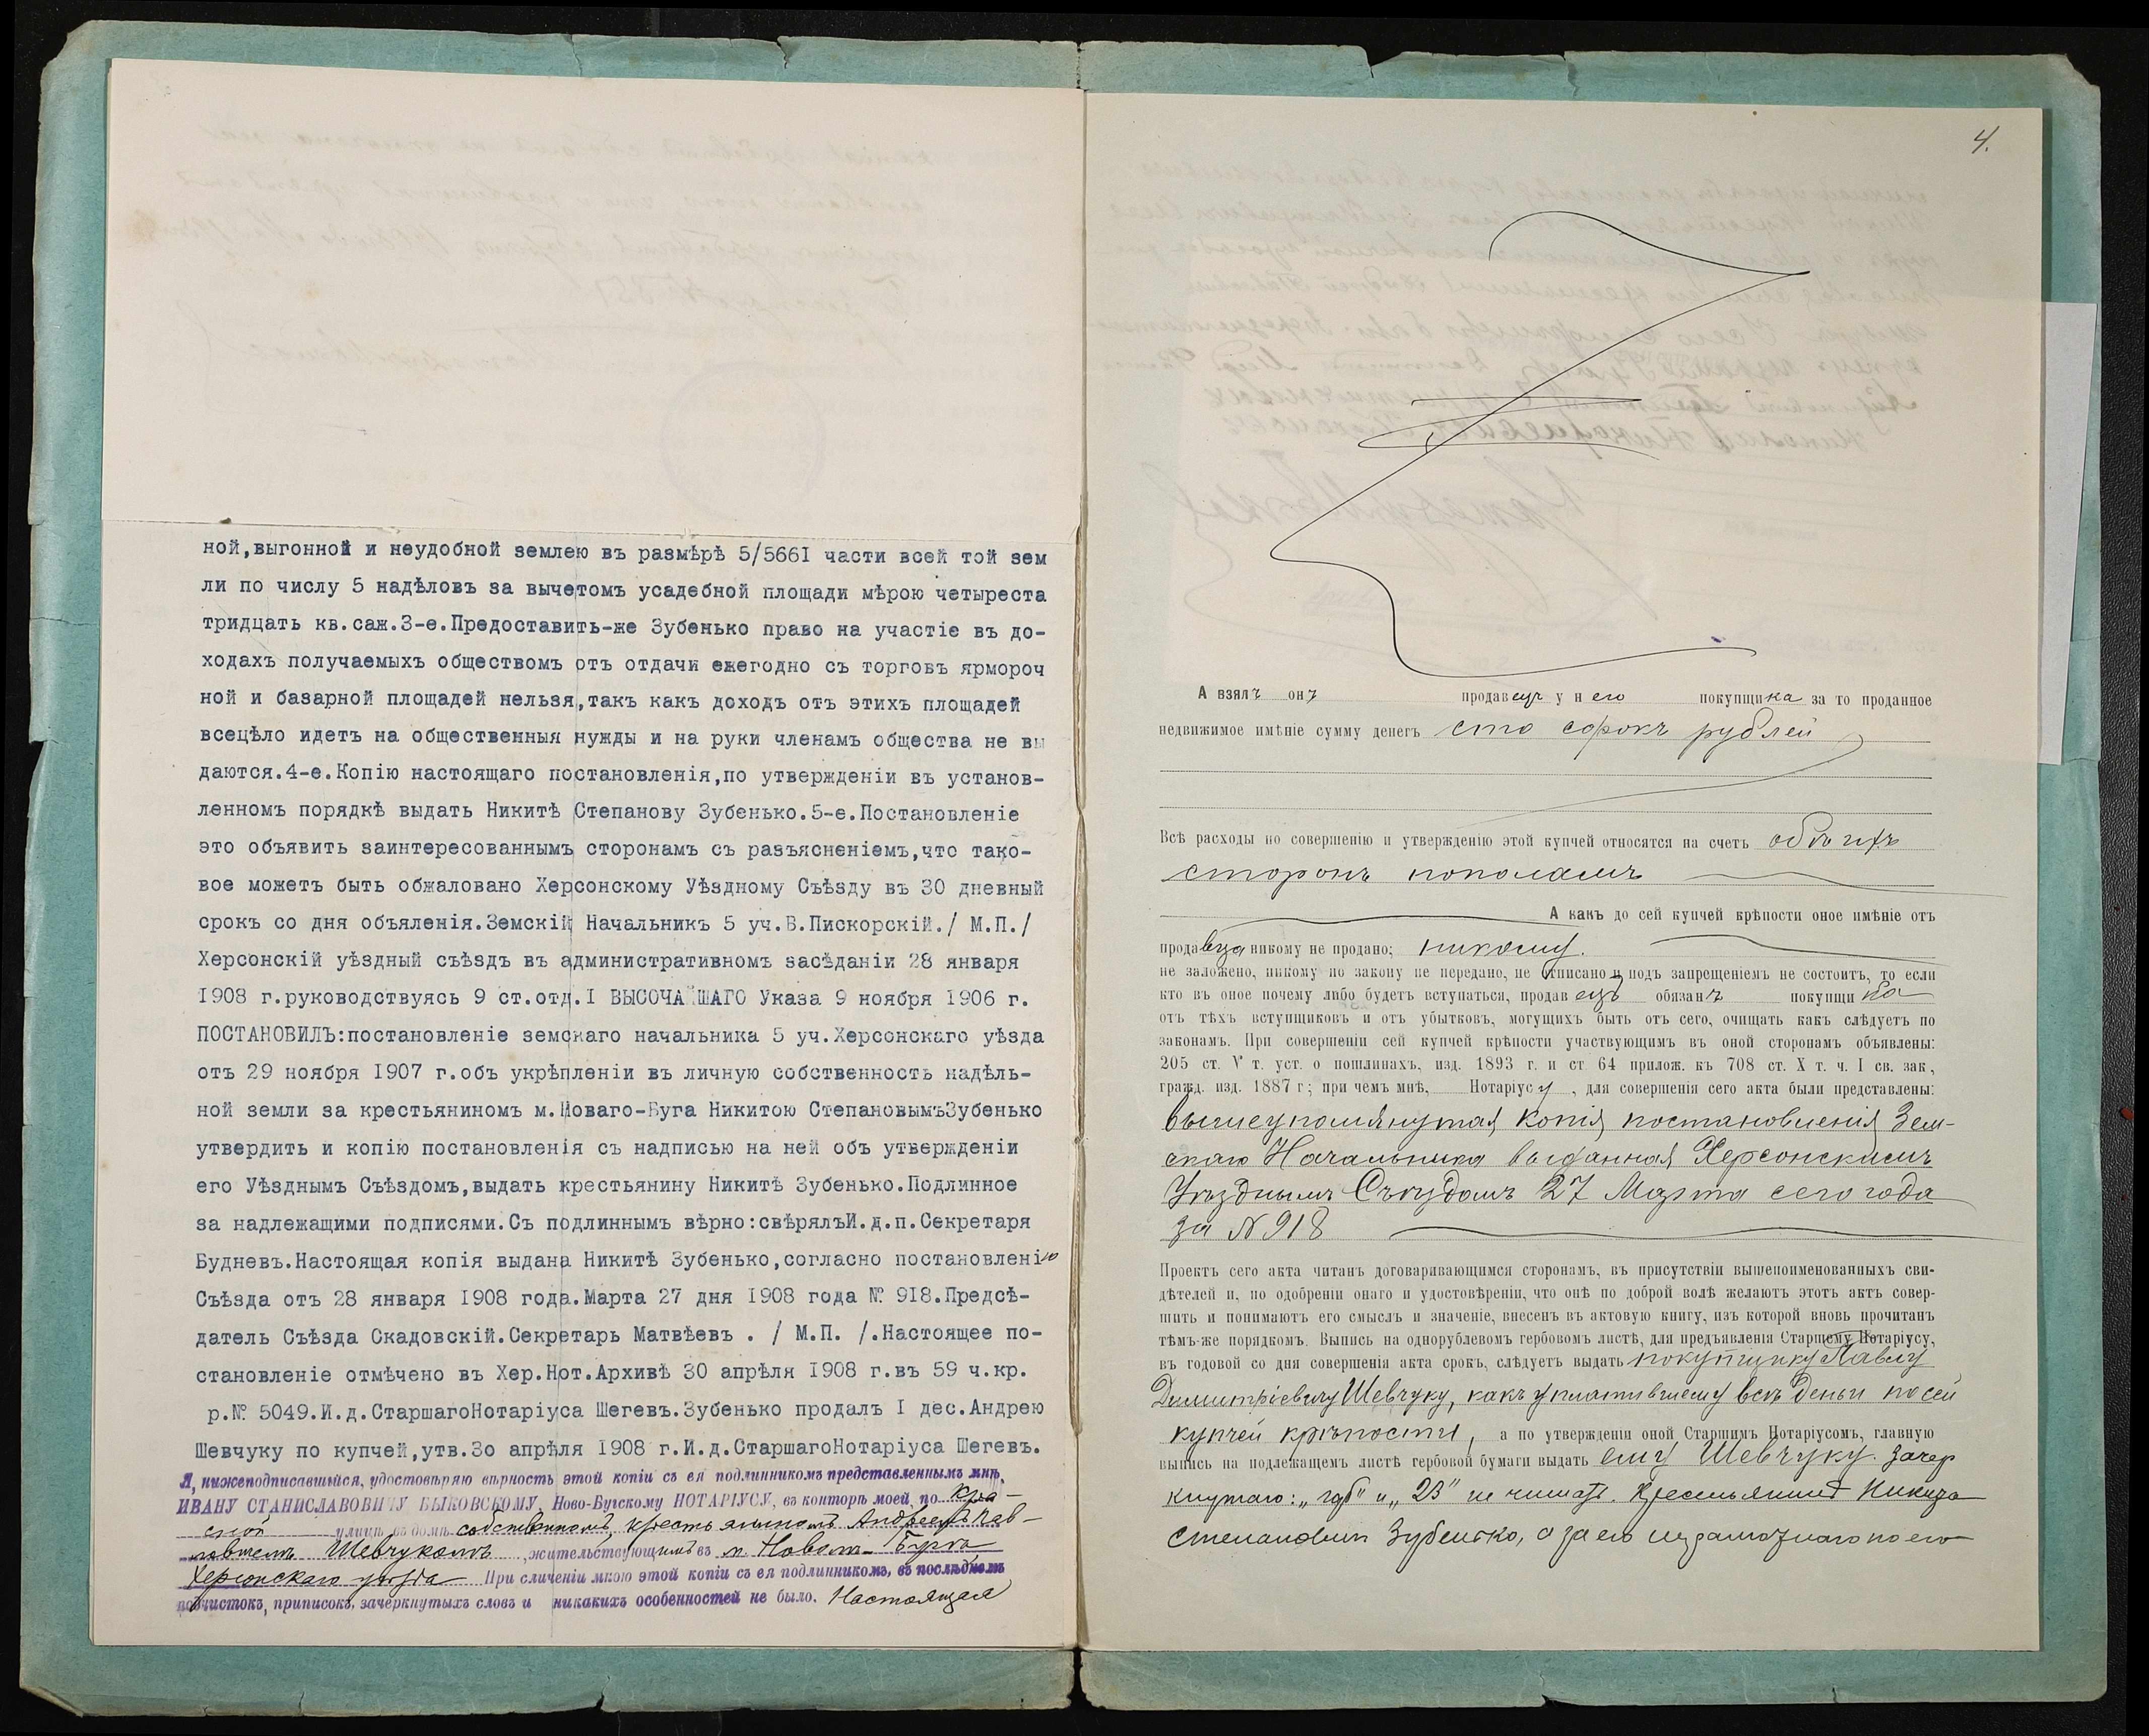 ной,выгонной и неудобной землею въ размѣрѣ 5/566I части всей той зем
ли по числу 5 надѣловъ за вычетомъ усадебной площади мѣрою четыреста
тридцать кв.саж.3-е.Предоставить-же Зубенько право на участіе въ до-
ходахъ получаемыхъ обществомъ отъ отдачи ежегодно съ торговъ ярмороч
ной и базарной площадей нельзя,такъ какъ доходъ отъ этихъ площадей
всецѣло идетъ на общественныя нужды и на руки членамъ общества не вы
даются.4-е.Копію настоящаго постановленія,по утвержденіи въ установ-
ленномъ порядкѣ выдать Никитѣ Степанову Зубенько.5-е.Постановленіе
это объявить заинтересованнымъ сторонамъ съ разъясненіемъ,что тако-
вое можетъ быть обжаловано Херсонскому Уѣздному Съѣзду въ 30 дневный
срокъ со дня объяленія.Земскій Начальникъ 5 уч.В.Пискорскій./ М.П./
Херсонскій уѣздный съѣздъ въ административномъ засѣданіи 28 января
I908 г.руководствуясь 9 ст.отд.I ВЫСОЧАЙШАГО Указа 9 ноября I906 г.
ПОСТАНОВИЛЪ:постановленіе земскаго начальника 5 уч.Херсонскаго уѣзда
отъ 29 ноября I907 г.объ укрѣпленіи въ личную собственность надѣль-
ной земли за крестьяниномъ м.Новаго-Буга Никитою СтепановымъЗубенько
утвердить и копію постановленія съ надписью на ней объ утвержденіи
его Уѣзднымъ Съѣздомъ,выдать крестьянину Никитѣ Зубенько.Подлинное
за надлежащими подписями.Съ подлиннымъ вѣрно:свѣрялъИ.д.п.Секретаря
Будневъ.Настоящая копія выдана Никитѣ Зубенько,согласно постановленію
Съѣзда отъ 28 января I908 года.Марта 27 дня I908 года № 9I8.Предсѣ-
датель Съѣзда Скадовскій.Секретарь Матвѣевъ . / М.П. /.Настоящее по-
становленіе отмѣчено въ Хер.Нот.Архивѣ 30 апрѣля I908 г.въ 59 ч.кр.
р.№ 5049.И.д.СтаршагоНотаріуса Шегевъ.Зубенько продалъ I дес.Андрею
Шевчуку по купчей,утв.3о апрѣля I908 г.И.д.СтаршагоНотаріуса Шегевъ.
Я, нижеподписавшійся, удостовѣряю вѣрность этой копіи съ ея подлинникомъ представленнымъ мнѣ,
ИВАНУ СТАНИСЛАВОВИЧУ БЫКОВСКОМУ, Ново-Бугскому НОТАРІУСУ, въ конторѣ моей, по Кра-
сной улицѣ въ домѣ собственномъ, крестьяниномъ Андреемъ Пав-
ловичемъ Шевчукомъ, жительствующимъ въ м. Новомъ-Бугѣ
Херсонскаго уѣзда При сличеніи мною этой копіи съ ея подлинникомъ, въ послѣднемъ
почистокъ, приписокъ, зачеркнутыхъ словъ и никакихъ особенностей не было. Настоящая
4.
А взялъ онъ продавецъ у него покупщика за то проданное
недвижимое имѣніе сумму денегъ сто сорокъ рублей
Всѣ расходы по совершенію и утвержденію этой купчей относятся на счетъ обѣихъ
сторонъ пополамъ
А какъ до сей купчей крѣпости оное имѣніе отъ
продавца никому не продано; никому.
не заложено, никому по закону не передано, не отписано и подъ запрещеніемъ не состоитъ, то если
кто въ оное почему либо будетъ вступаться, продавецъ обязанъ покупщика
отъ тѣхъ вступщиковъ и отъ убытковъ, могущихъ быть отъ сего, очищать какъ слѣдуетъ по
законамъ. При совершеніи сей купчей крѣпости участвующимъ въ оной сторонамъ объявлены:
205 ст. V т. уст. о пошлинахъ, изд. 1893 г. и ст 64 прилож. къ 708 ст. X т. ч. I св. зак,
гражд. изд. 1887 г; при чемъ мнѣ, Нотаріусу, для совершенія сего акта были представлены:
вышеупомянутая копія постановленія Зем-
скаго Начальника выданная Херсонскимъ
Уѣзднымъ Съѣздомъ 27 Марта сего года
за №918
Проектъ сего акта читанъ договаривающимся сторонамъ, въ присутствіи вышепоименованныхъ сви-
дѣтелей и, по одобреніи онаго и удостовѣреніи, что онѣ по доброй волѣ желаютъ этотъ актъ совер-
шить и понимаютъ его смыслъ и значеніе, внесенъ въ актовую книгу, изъ которой вновь прочитанъ
тѣмъ-же порядкомъ. Выпись на однорублевомъ гербовомъ листѣ, для предъявленія Старшему Нотаріусу,
въ годовой со дня совершенія акта срокъ, слѣдуетъ выдать покупщику Павлу
Димитріевичу Шевчуку, какъ уплатившему всѣ деньги по сей
купчей крѣпости, а по утвержденіи оной Старшимъ Нотаріусомъ, главную
выпись на подлежащемъ листѣ гербовой бумаги выдать ему Шевчуку. Зачер
кнутаго: „губ" и „23" не читать. Крестьянинъ Никита
Степановичъ Зубенько, а за его неграмотнаго по его